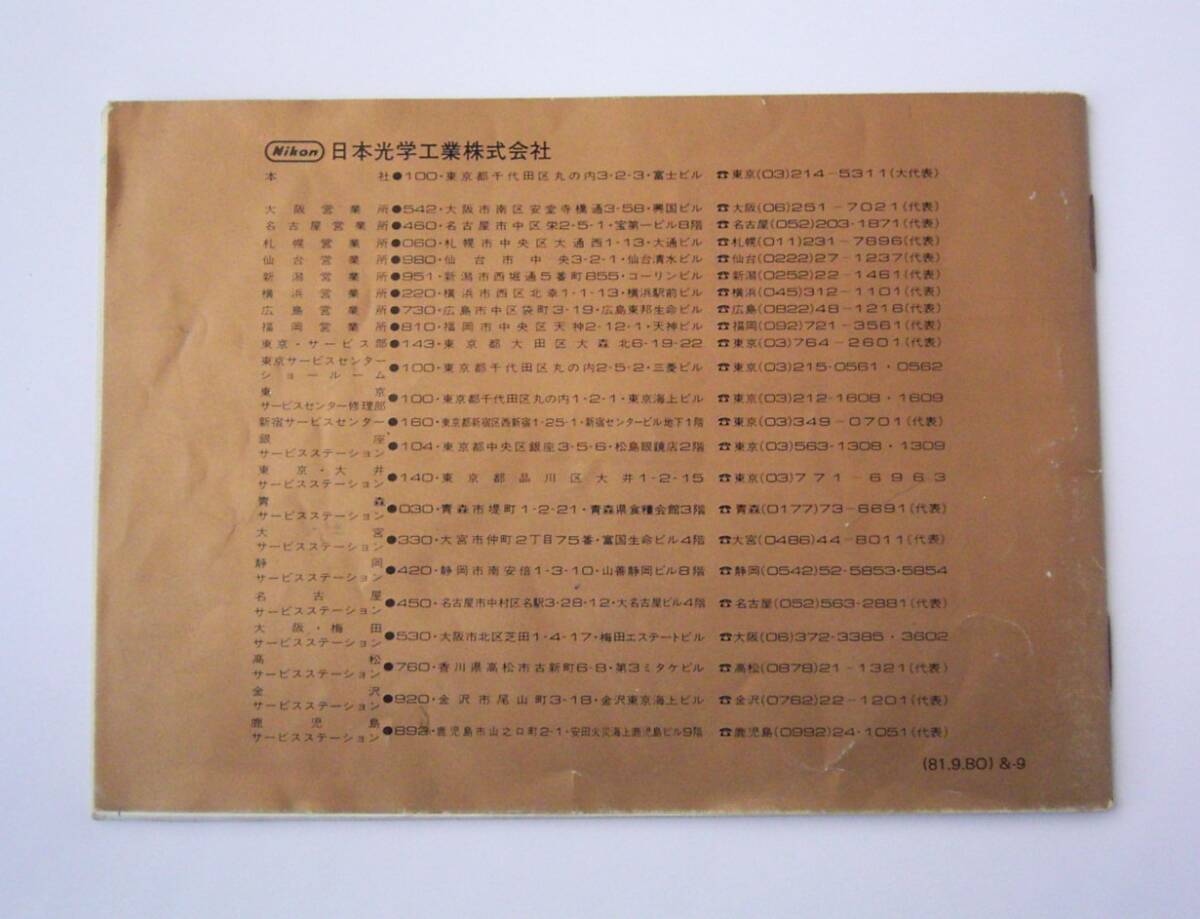 Nikon 日本光学工業株式会社
本社●100・東京都千代田区丸の内3-2-3・富士ビル ☎東京(03)214-5311(大代表)
大阪営業所●542・大阪市南区安堂寺橋通3-58・興国ビル ☎大阪(06)251-7021(代表)
名古屋営業所●460・名古屋市中区栄2-5-1・宝第一ビル8階 ☎名古屋(052)203-1871(代表)
札幌営業所●060・札幌市中央区大通西1-13・大通ビル ☎札幌(011)231-7896(代表)
仙台営業所●980・仙台市中央3-2-1・仙台清水ビル ☎仙台(0222)27-1237(代表)
新潟営業所●951・新潟市西堀通5番町855・コーリンビル ☎新潟(0252)22-1461(代表)
横浜営業所●220・横浜市西区北幸1-1-13・横浜駅前ビル ☎横浜(045)312-1101(代表)
広島営業所●730・広島市中区袋町3-19・広島東邦生命ビル ☎広島(0822)48-1216(代表)
福岡営業所●810・福岡市中央区天神2-12-1・天神ビル ☎福岡(092)721-3561(代表)
東京・サービス部●143・東京都大田区大森北6-19-22 ☎東京(03)764-2601(代表)
東京サービスセンター
ショールーム●100・東京都千代田区丸の内2-5-2・三菱ビル ☎東京(03)215-0561・0562
東京
サービスセンター修理部●100・東京都千代田区丸の内1-2-1・東京海上ビル ☎東京(03)212-1608・1609
新宿サービスセンター●160・東京都新宿区西新宿1-25-1・新宿センタービル地下1階 ☎東京(03)349-0701(代表)
銀座
サービスステーション●104・東京都中央区銀座3-5-6・松島眼鏡店2階 ☎東京(03)563-1308・1309
東京・大井
サービスステーション●140・東京都品川区大井1-2-15 ☎東京(03)771-6963
青森
サービスステーション●030・青森市堤町1-2-21・青森県食糧会館3階 ☎青森(0177)73-6691(代表)
大宮
サービスステーション●330・大宮市仲町2丁目75番・富国生命ビル4階 ☎大宮(0486)44-8011(代表)
静岡
サービスステーション●420・静岡市南安倍1-3-10・山善静岡ビル8階 ☎静岡(0542)52-5853・5854
名古屋
サービスステーション●450・名古屋市中村区名駅3-28-12・大名古屋ビル4階 ☎名古屋(052)563-2881(代表)
大阪・梅田
サービスステーション●530・大阪市北区芝田1-4-17・梅田エステートビル ☎大阪(06)372-3385・3602
高松
サービスステーション●760・香川県高松市古新町6-8・第3ミタケビル ☎高松(0878)21-1321(代表)
金沢
サービスステーション●920・金沢市尾山町3-18・金沢東京海上ビル ☎金沢(0762)22-1201(代表)
鹿児島
サービスステーション●892・鹿児島市山之口町2-1・安田火災海上鹿児島ビル9階 ☎鹿児島(0992)24-1051(代表)
(81.9.80) &-9